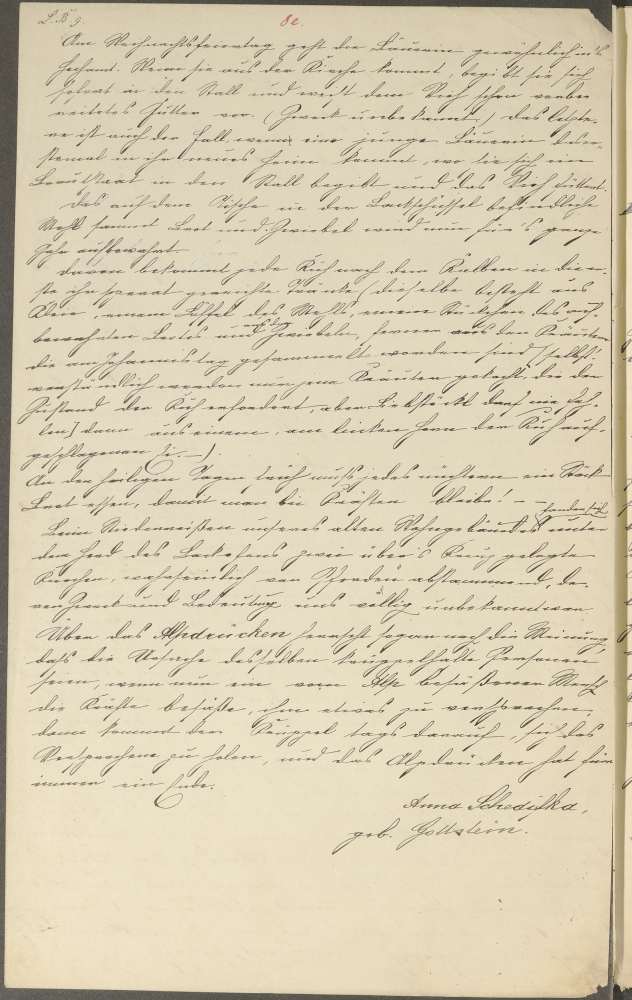 L. B 9. 8c.
Am Weihnachtsfeiertag geht die Bäuerin gewöhnlich in's
Hochamt. Wenn sie aus der Kirche kommt, begibt sie sich
sofort in den Stall und wirft dem Vieh schon vorbe-
reitetes Futter vor. (Zweck unbekannt) Das letzte-
re ist auch der Fall, wenn eine junge Bäuerin das er-
stemal in ihr neues Heim kommt, wo sie sich im
Brautstaat in den Stall begibt und das Vieh füttert.
Das auf dem Tische in der Backschüssel befindliche
Mehl sammt Brot und Zwiebel wird nun für's ganze
Jahr aufbewahrt.
Davon bekommt jede Kuh nach dem Kalben in die er-
ste ihr gereichte Tränke (dieselbe besteht aus
Kleie, einem Löffel des Mehls, einem Stückchen des auf-
bewahrten Brotes und Zwiebeln, ferner aus den Kräutern
die am Johannistag gesammelt worden sind [selbst-
verständlich werden nur jene Kräuter gekocht, die der
Zustand der Kuh erfordert, aber Liebstöckl darf nie feh-
len] dann aus einem, am linken Horn der Kuh auf-
geschlagenen Ei. –).
An den heiligen Tagen früh muß jedes nüchtern ein Stück
Brot essen, damit man bei Kräften bleibe! – –
Beim Niederreißen unseres alten Wohngebäudes fanden sich unter
dem Herd des Backofens zwei über's Kreuz gelegte
Knochen, wahrscheinlich von Pferden abstammend, de-
ren Zweck und Bedeutung uns völlig unbekannt war.
Über das Alpdrücken herrscht sogar noch die Meinung,
daß die Ursache desselben krüppelhafte Personen
seien, wenn nun ein vom Alp besessener Mensch
die Kräfte besäße, ihm etwas zu versprechen,
dann kommt der Krüppel tags darauf, sich das
Versprochene zu holen, und das Alpdrücken hat für
immer ein Ende.
Anna Schediska,
geb. Gottstein.